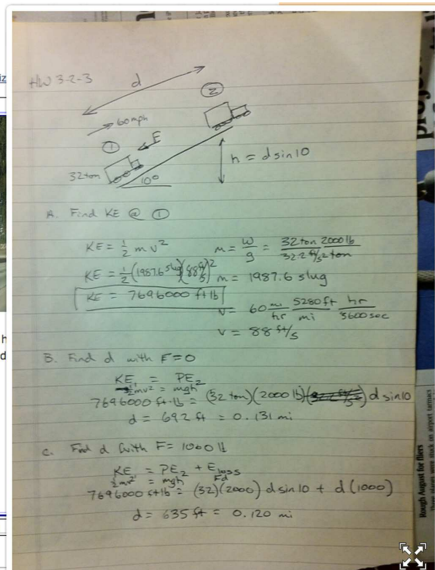 HW 3-2-3
d
60mph
②
① F
32 ton
10°
h = d sin 10
A. Find KE @ ①
KE = 1/2 m v² m = w/g = 32 ton 2000 lb / 32.2 ft/s² ton
KE = 1/2 (1987.6 slug)(88 ft/s)² m = 1987.6 slug
KE = 7696000 ft lb
v = 60 mi/hr 5280 ft/mi hr/3600 sec
v = 88 ft/s
B. Find d with F=0
KE₁ = PE₂
1/2 mv² = mgh
7696000 ft lb = (32 ton)(2000 lb) d sin 10
d = 692 ft = 0.131 mi
C. Find d with F= 1000 lb
KE = PE₂ + Eloss
1/2 mv² = mgh Fd
7696000 ft lb = (32)(2000) d sin 10 + d (1000)
d = 635 ft = 0.120 mi
Rough August for fliers